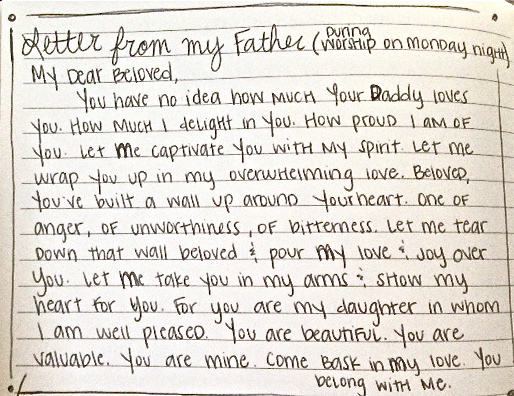 Letter from my Father (During Worship on Monday night)
My Dear Beloved,
You have no idea how much Your Daddy loves
you. How much I delight in you. How proud I am of
you. Let me captivate you with my spirit. Let me
wrap you up in my overwhelming love. Beloved,
you've built a wall up around your heart. One of
anger, of unworthiness, of bitterness. Let me tear
down that wall beloved & pour my love & joy over
you. Let me take you in my arms & show my
heart for you. For you are my daughter in whom
I am well pleased. You are beautiful. You are
valuable. You are mine. Come bask in my love. You
belong with me.